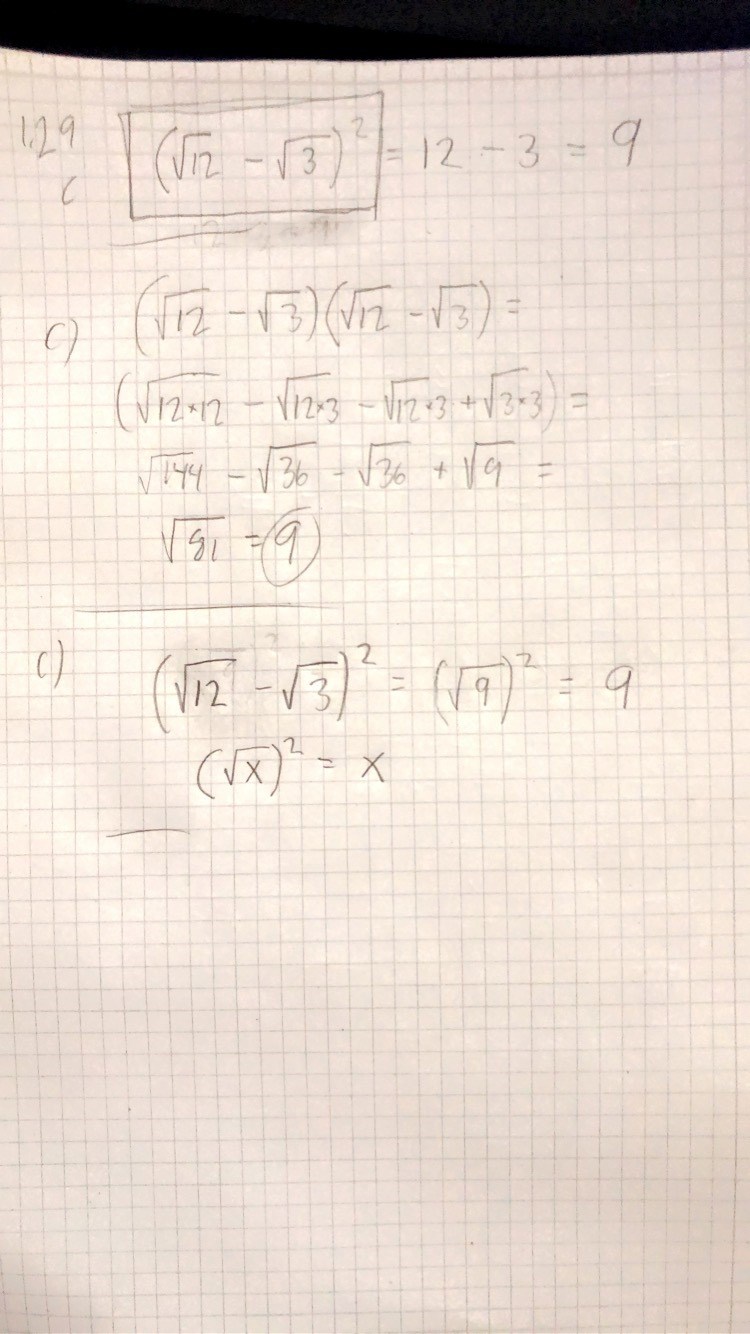 1.29 (√12 − √3)² = 12 − 3 = 9
c
c) (√12 − √3)(√12 − √3) =
(√12*12 − √12*3 − √12*3 + √3*3) =
√144 − √36 − √36 + √9 =
√81 = 9
c) (√12 − √3)² = (√9)² = 9
(√x)² = x